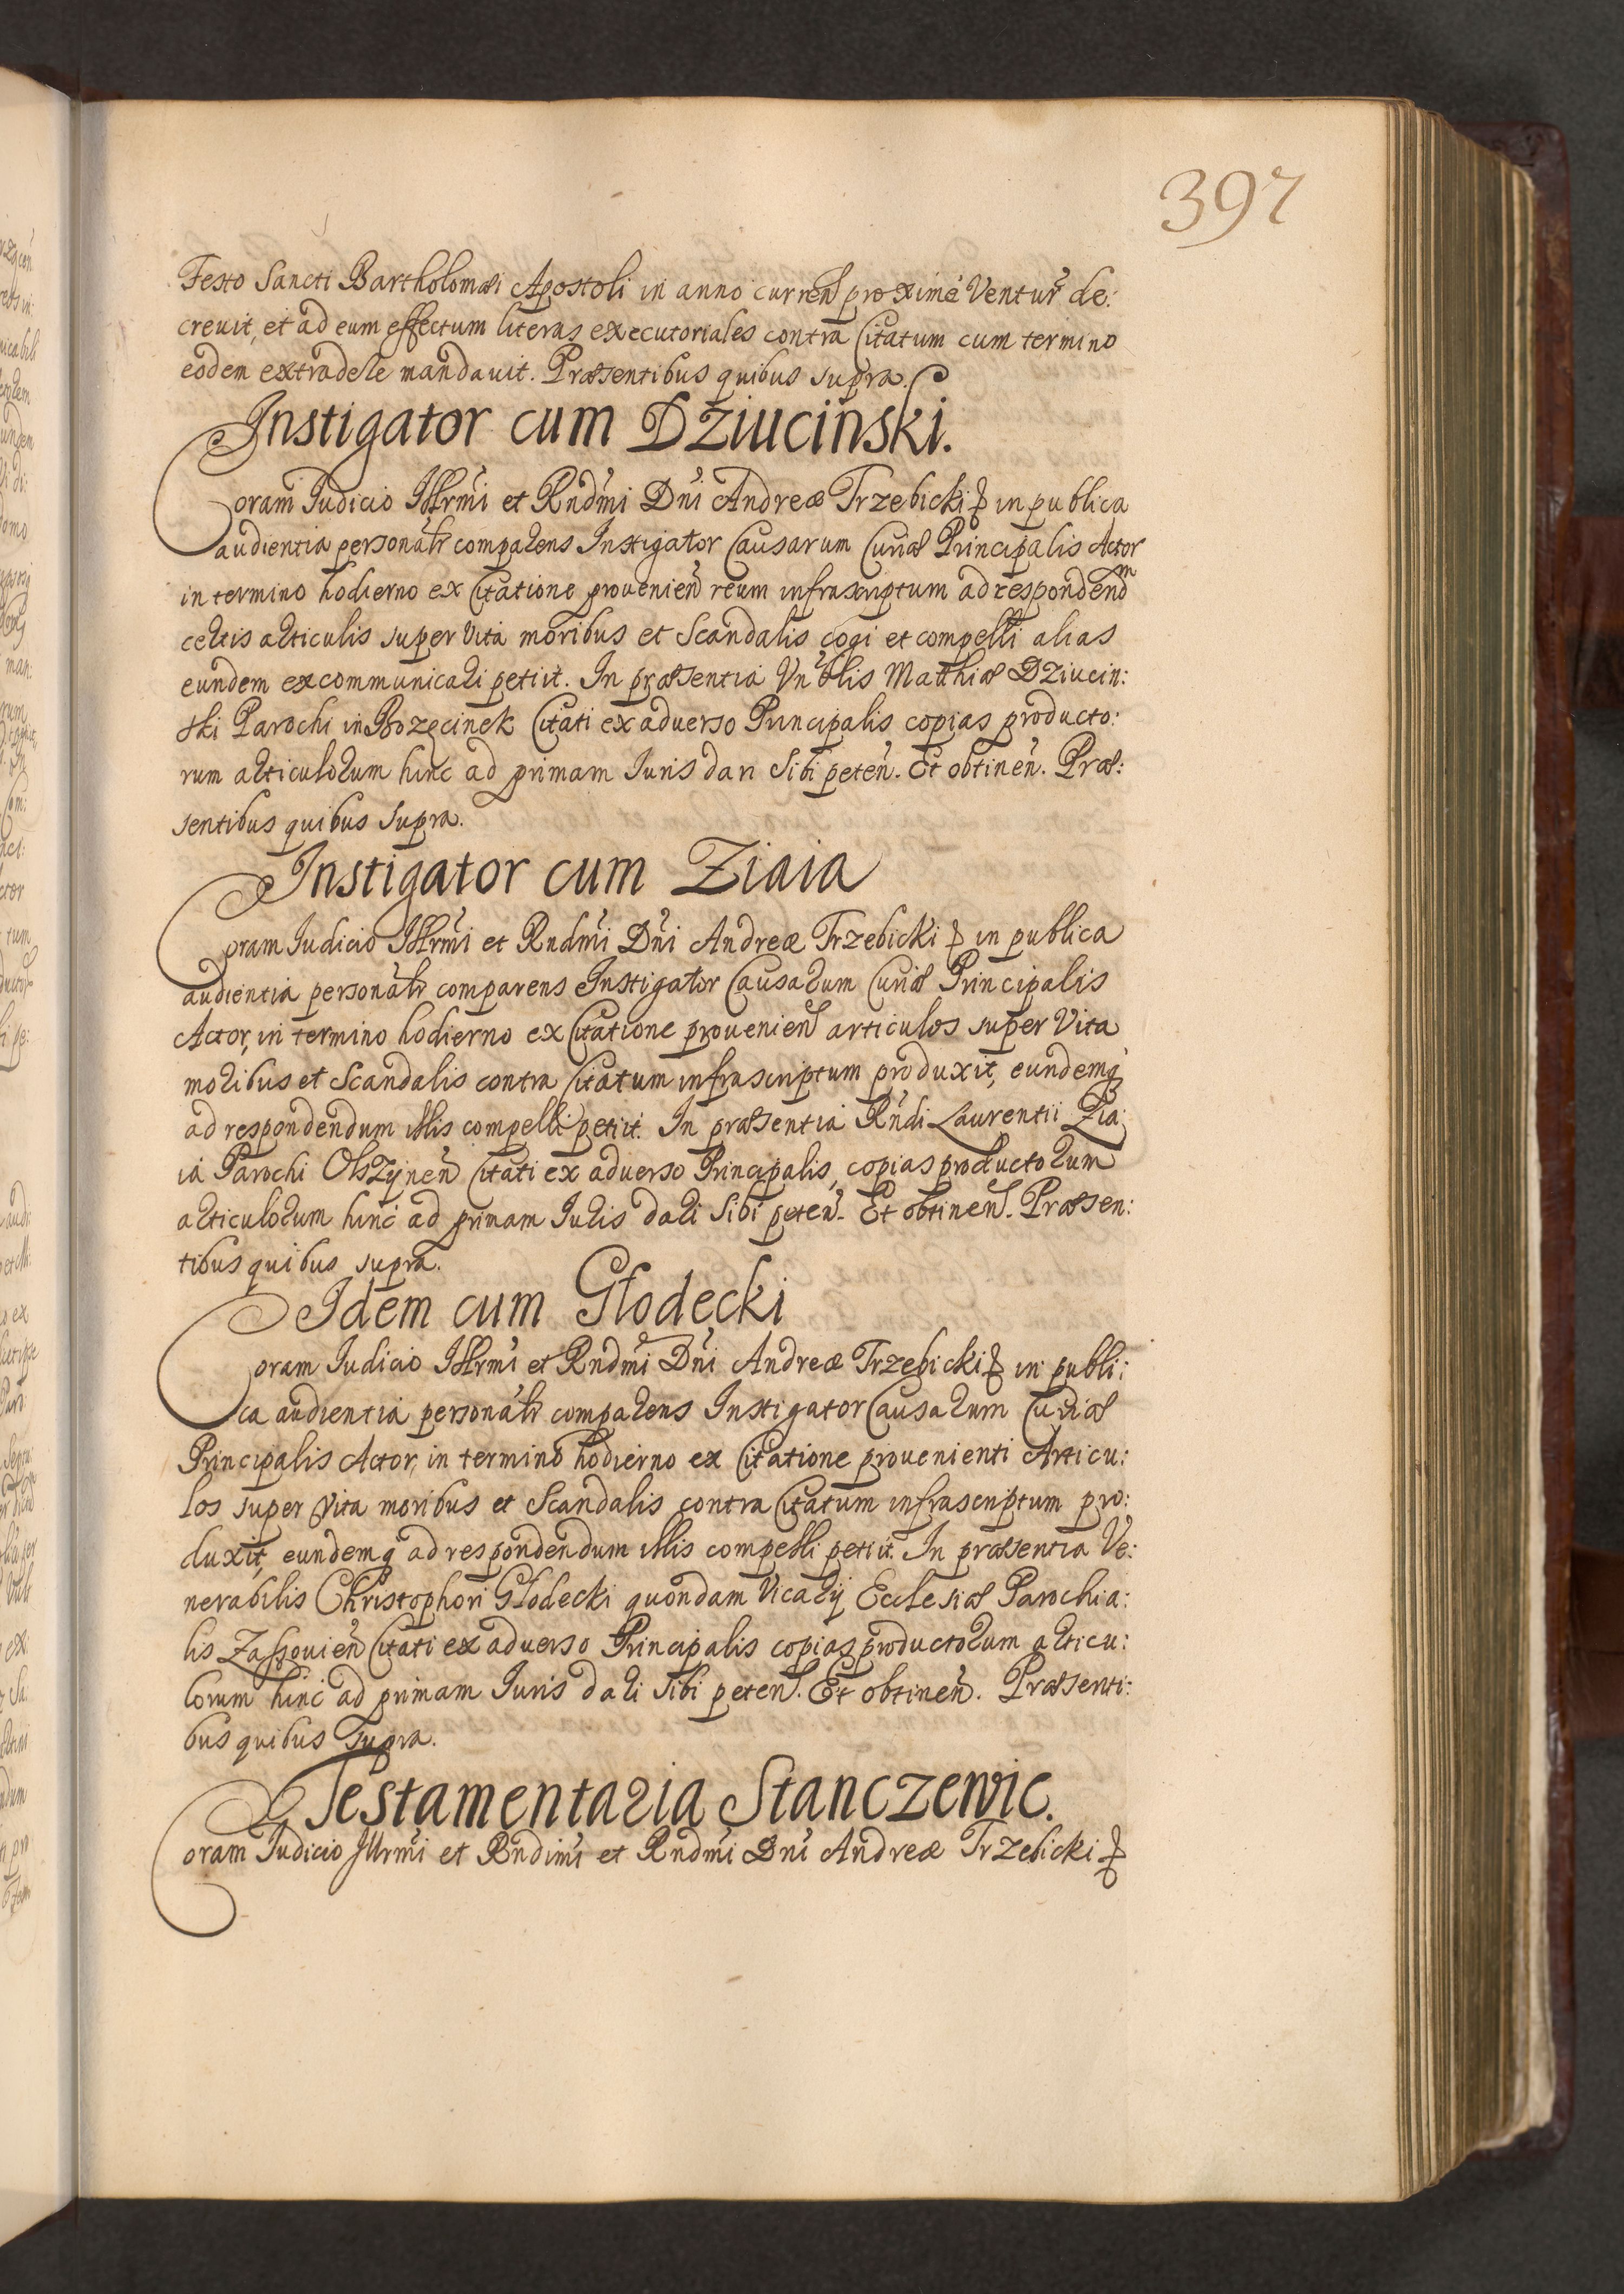 397
Festo Sancti Bartholomæi Apostoli in anno curren̄ proximè Ventur̄ de:
creuit, et ad eum effectum literas executoriales contra Citatum cum termino
eodem extradere mandauit. Præsentibus quibus supra.
Instigator cum Dziucinski.
Coram Iudicio Illrmi et Rndmi Dni Andreæ Trzebicki in publica
audientia personalr comparens Instigator Causarum Curiæ Principalis Actor
in termino hodierno ex Citatione prouenien̄ reum infrascriptum ad respondendm
certis articulis super vita moribus et Scandalis cogi et compelli alias
eundem excommunicari petiit. In præsentia Vnblis Matthiæ Dziucin:
ski Parochi in Brzęcinek Citati ex aduerso Principalis copias producto:
rum articulorum hinc ad primam Iuris dari sibi peten̄. Et obtinen̄. Præ:
sentibus quibus supra.
Instigator cum Ziaia
Coram Iudicio Illrmi et Rndmi Dni Andreæ Trzebicki in publica
audientia personalr comparens Instigator Causarum Curiæ Principalis
Actor, in termino hodierno ex Citatione prouenien̄ articulos super Vita
moribus et Scandalis contra Citatum infrascriptum produxit, eundemq
ad respondendum illis compelli petiit. In præsentia Rndi Laurentii Zia:
ia Parochi Olszynen̄ Citati ex aduerso Principalis, copias productorum
articulorum hinc ad primam Iuris dari sibi peten̄. Et obtinen̄. Præsen:
tibus quibus supra.
Idem cum Głodecki
Coram Iudicio Illrmi et Rndmi Dni Andreæ Trzebicki in publi:
ca audientia personalr comparens Instigator Causarum Curiæ
Principalis Actor, in termino hodierno ex Citatione prouenienti Articu:
los super Vita moribus et Scandalis contra Citatum infrascriptum pro:
duxit, eundemq ad respondendum illis compelli petiit. In præsentia Ve:
nerabilis Christophori Głodecki quondam Vicarij Ecclesiæ Parochia:
lis Zassouien̄ Citati ex aduerso Principalis copias productorum articu:
lorum hinc ad primam Iuris dari sibi peten̄. Et obtinen̄. Præsenti:
bus quibus supra.
Testamentaria Stanczewic.
Coram Iudicio Illrmi et Rndimi et Rndmi Dni Andreæ Trzebicki